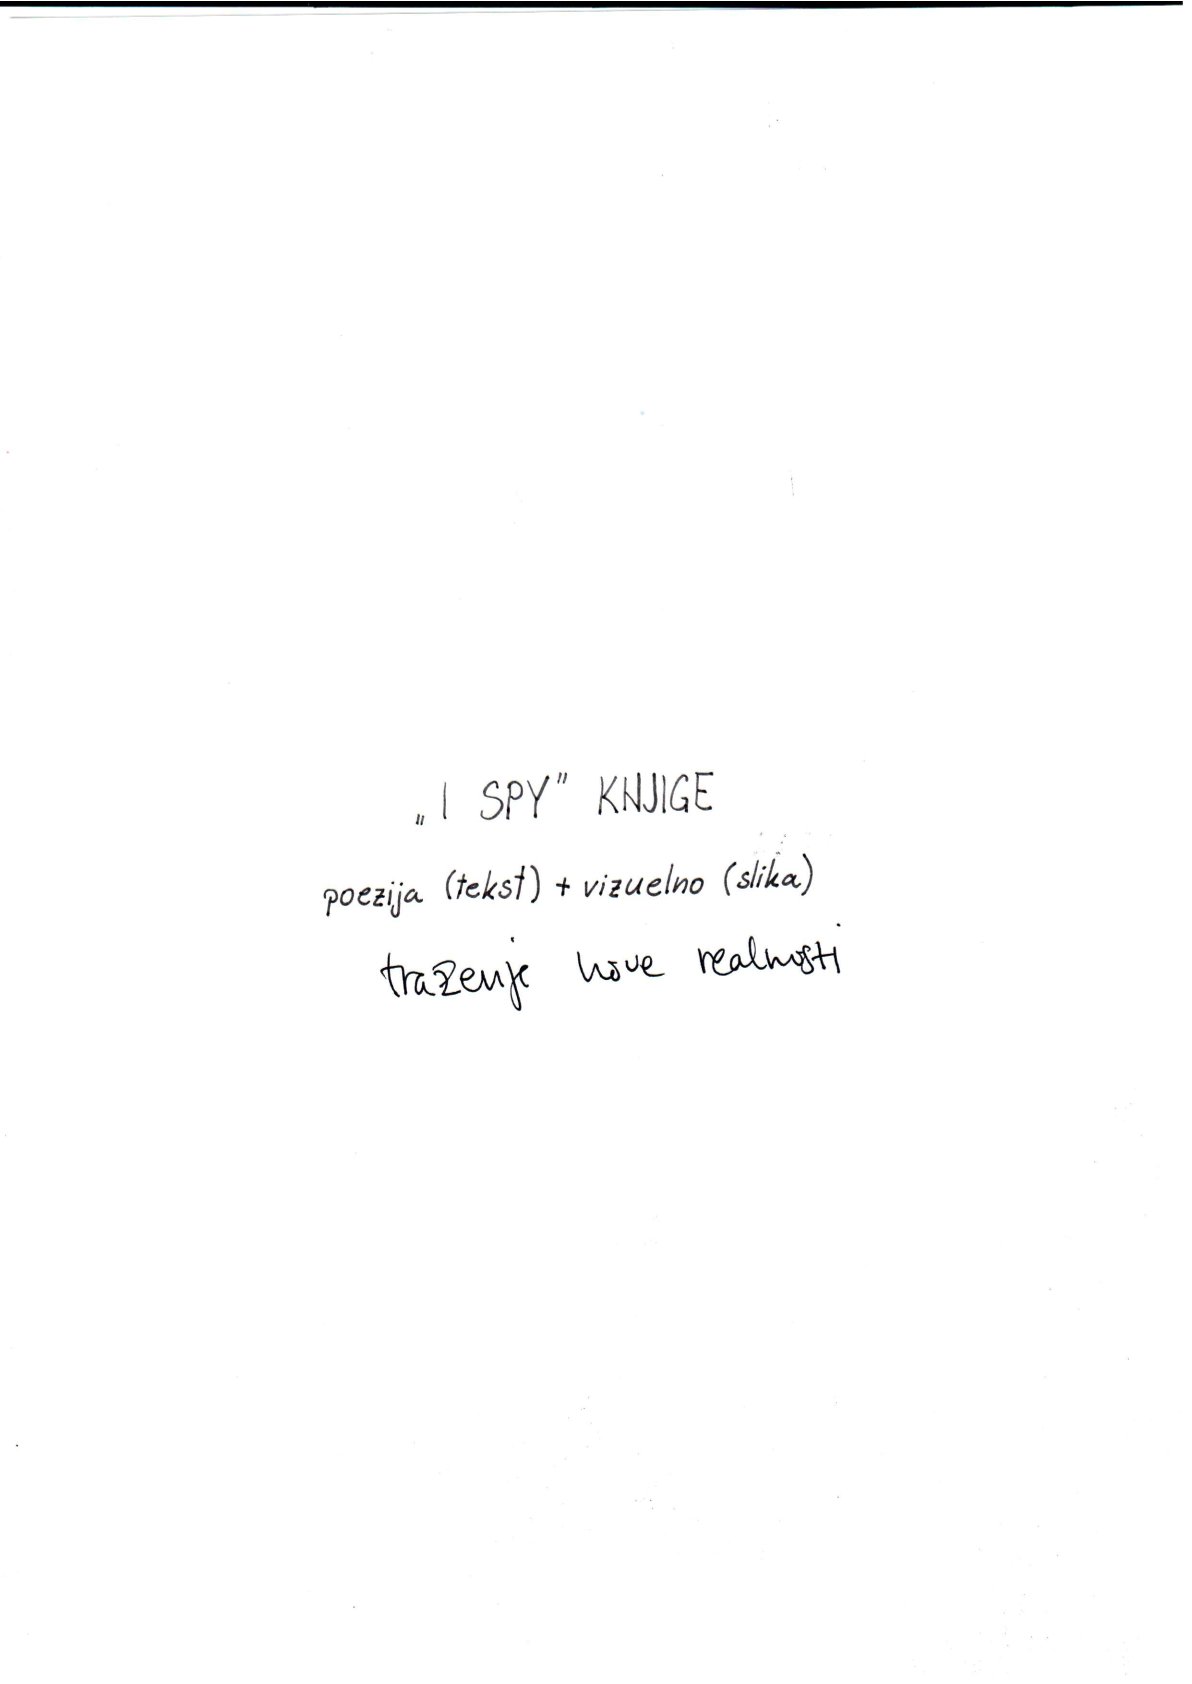 „I SPY" KNJIGE
poezija (tekst) + vizuelno (slika)
traženje nove realnosti